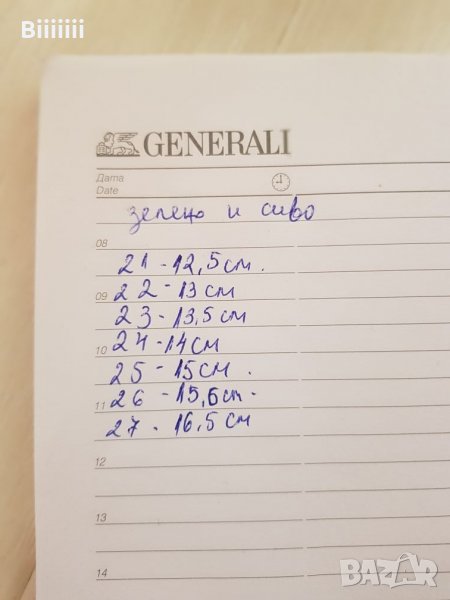 Biiiiiii
GENERALI
Дата
Date
зелено и сиво
08
21 - 12,5 см.
09 22 - 13 см
23 - 13,5 см
10 24 - 14 см
25 - 15 см.
11 26 - 15,6 cm.
27 - 16,5 см
12
13
14
BAZAR